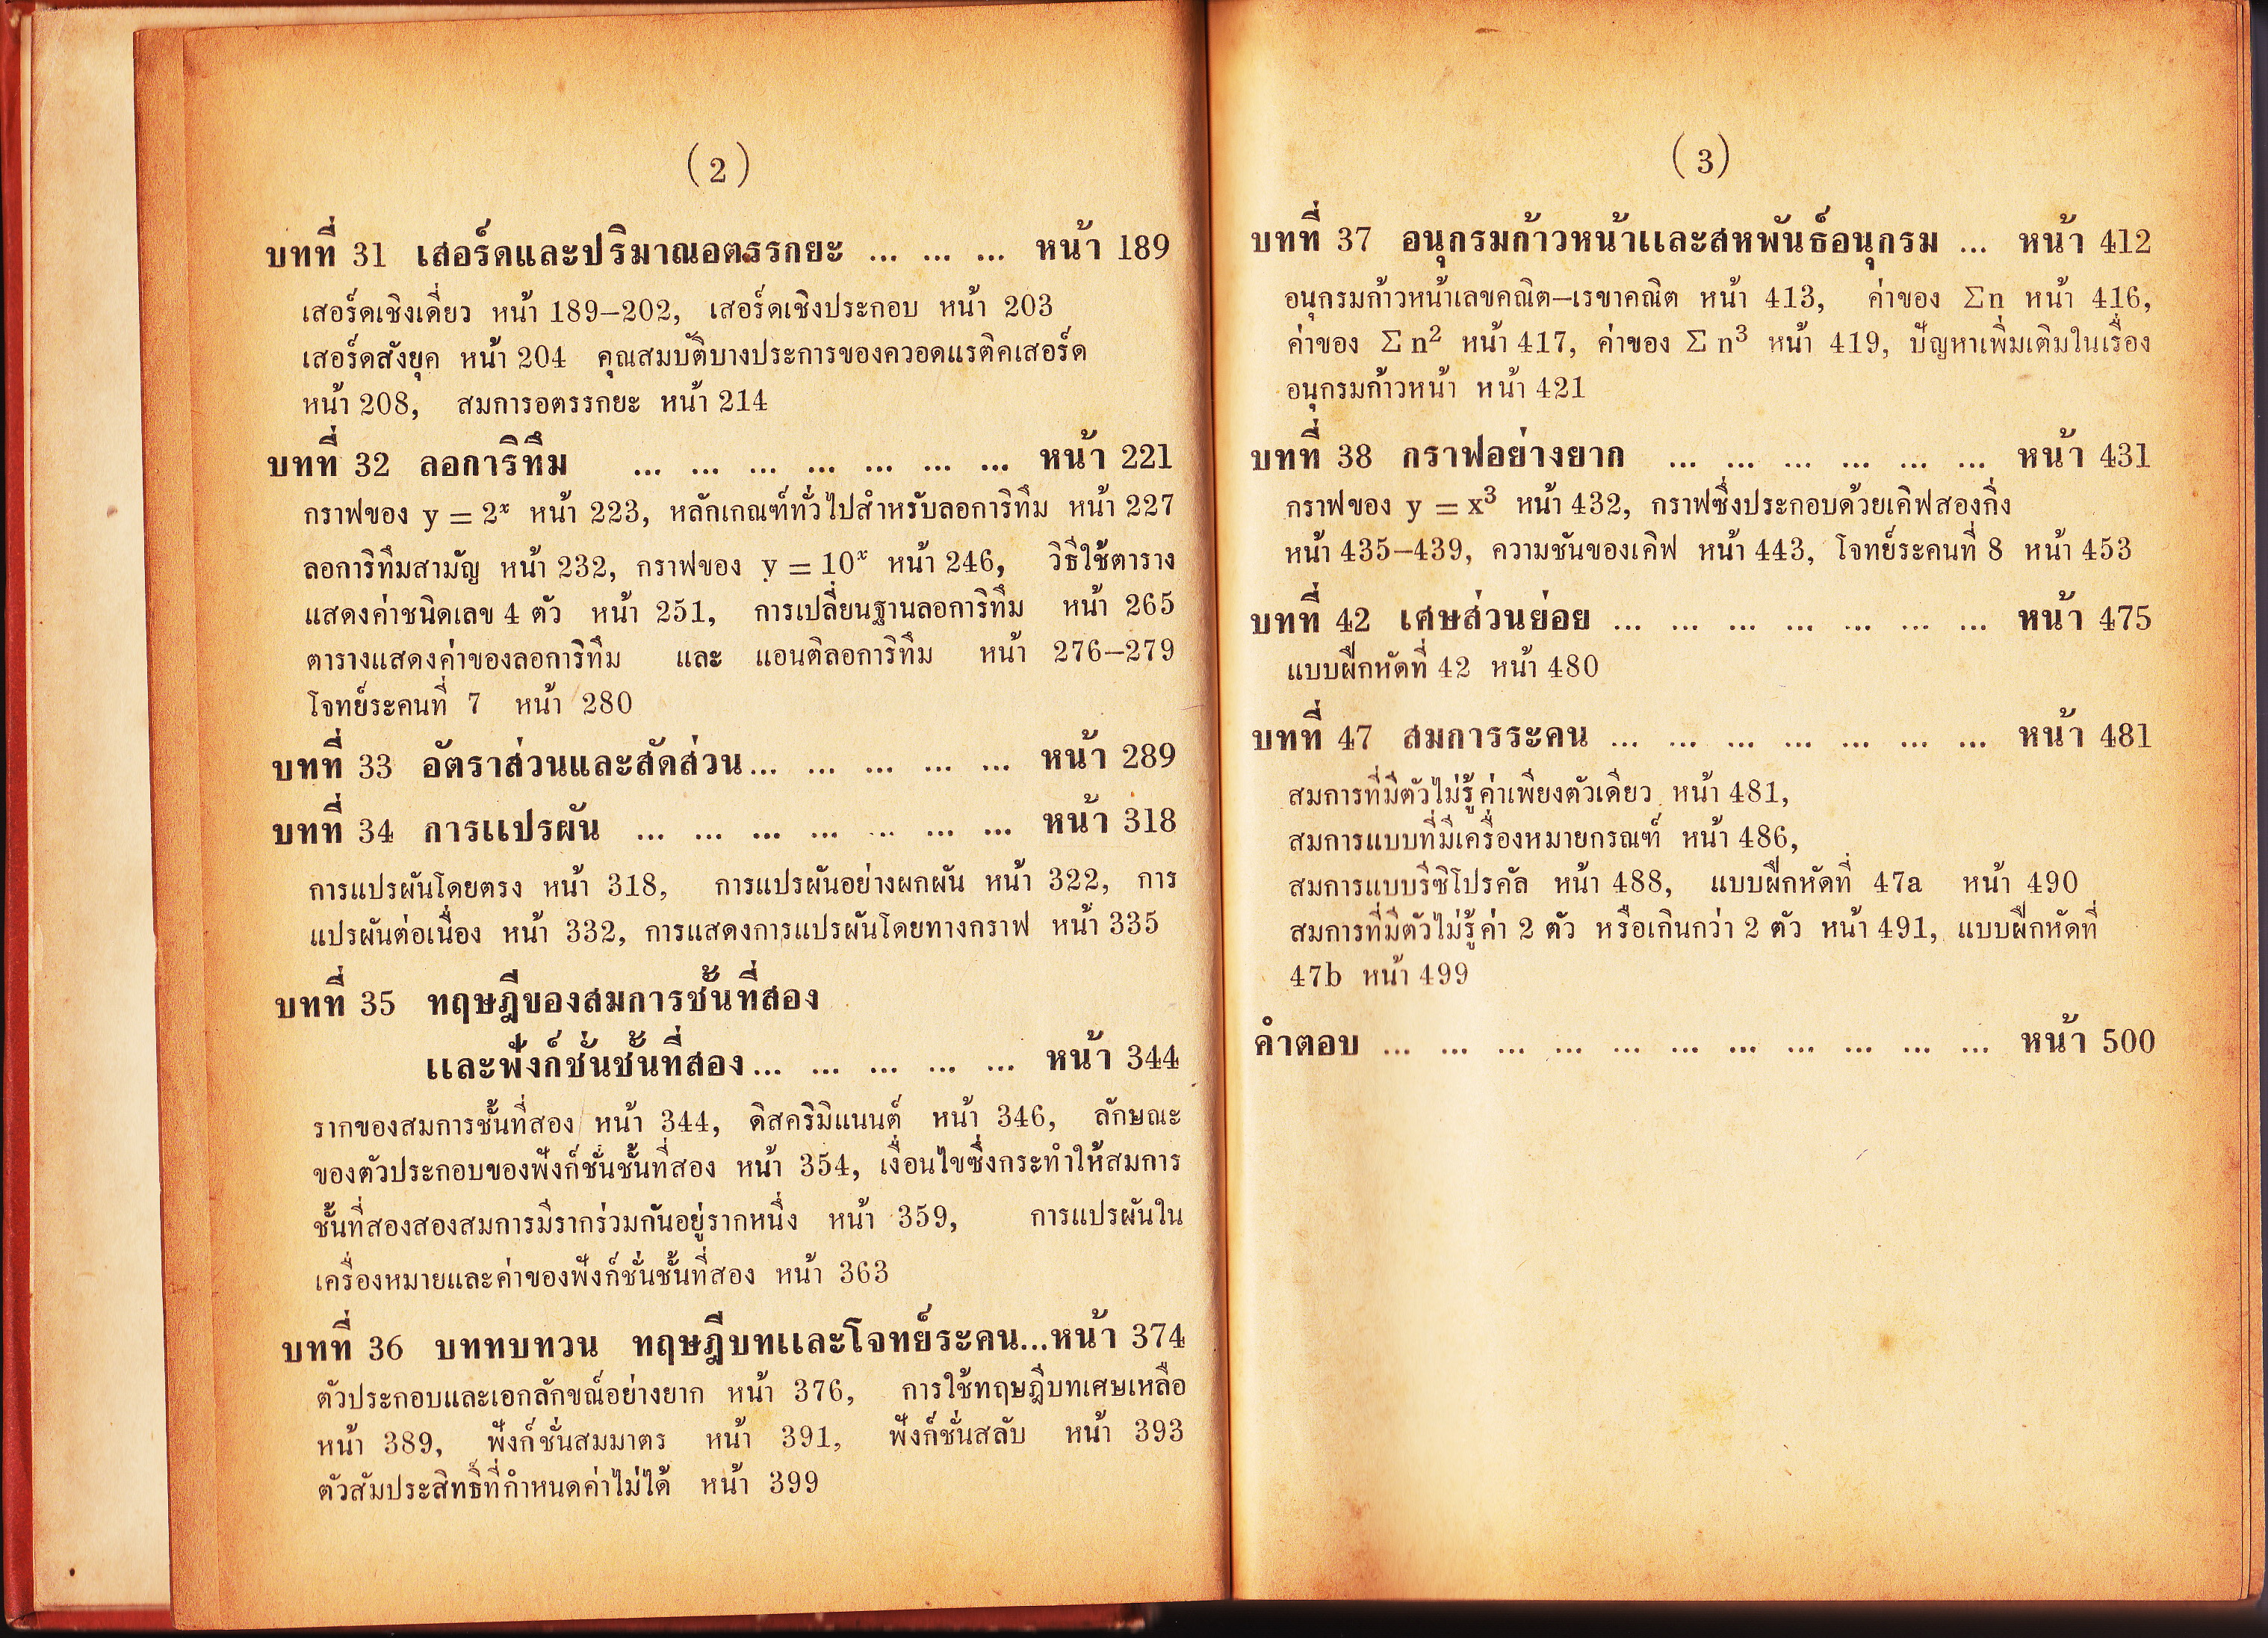 (2)
บทที่ 31 เสอร์ดและปริมาณอตรรกยะ ... ... ... หน้า 189
เสอร์ดเชิงเดี่ยว หน้า 189–202, เสอร์ดเชิงประกอบ หน้า 203
เสอร์ดสังยุค หน้า 204 คุณสมบัติบางประการของควอดแรติคเสอร์ด
หน้า 208, สมการอตรรกยะ หน้า 214
บทที่ 32 ลอการิทึม ... ... ... ... ... ... ... หน้า 221
กราฟของ y = 2ˣ หน้า 223, หลักเกณฑ์ทั่วไปสำหรับลอการิทึม หน้า 227
ลอการิทึมสามัญ หน้า 232, กราฟของ y = 10ˣ หน้า 246, วิธีใช้ตาราง
แสดงค่าชนิดเลข 4 ตัว หน้า 251, การเปลี่ยนฐานลอการิทึม หน้า 265
ตารางแสดงค่าของลอการิทึม และ แอนติลอการิทึม หน้า 276–279
โจทย์ระคนที่ 7 หน้า 280
บทที่ 33 อัตราส่วนและสัดส่วน... ... ... ... ... หน้า 289
บทที่ 34 การแปรผัน ... ... ... ... ... ... ... หน้า 318
การแปรผันโดยตรง หน้า 318, การแปรผันอย่างผกผัน หน้า 322, การ
แปรผันต่อเนื่อง หน้า 332, การแสดงการแปรผันโดยทางกราฟ หน้า 335
บทที่ 35 ทฤษฎีของสมการชั้นที่สอง
และฟังก์ชั่นชั้นที่สอง... ... ... ... ... หน้า 344
รากของสมการชั้นที่สอง หน้า 344, ดิสคริมิแนนต์ หน้า 346, ลักษณะ
ของตัวประกอบของฟังก์ชั่นชั้นที่สอง หน้า 354, เงื่อนไขซึ่งกระทำให้สมการ
ชั้นที่สองสองสมการมีรากร่วมกันอยู่รากหนึ่ง หน้า 359, การแปรผันใน
เครื่องหมายและค่าของฟังก์ชั่นชั้นที่สอง หน้า 363
บทที่ 36 บททบทวน ทฤษฎีบทและโจทย์ระคน...หน้า 374
ตัวประกอบและเอกลักขณ์อย่างยาก หน้า 376, การใช้ทฤษฎีบทเศษเหลือ
หน้า 389, ฟังก์ชั่นสมมาตร หน้า 391, ฟังก์ชั่นสลับ หน้า 393
ตัวสัมประสิทธิ์ที่กำหนดค่าไม่ได้ หน้า 399
(3)
บทที่ 37 อนุกรมก้าวหน้าและสหพันธ์อนุกรม ... หน้า 412
อนุกรมก้าวหน้าเลขคณิต–เรขาคณิต หน้า 413, ค่าของ Σn หน้า 416,
ค่าของ Σn² หน้า 417, ค่าของ Σn³ หน้า 419, ปัญหาเพิ่มเติมในเรื่อง
อนุกรมก้าวหน้า หน้า 421
บทที่ 38 กราฟอย่างยาก ... ... ... ... ... ... หน้า 431
กราฟของ y = x³ หน้า 432, กราฟซึ่งประกอบด้วยเคิฟสองกิ่ง
หน้า 435–439, ความชันของเคิฟ หน้า 443, โจทย์ระคนที่ 8 หน้า 453
บทที่ 42 เศษส่วนย่อย ... ... ... ... ... ... ... หน้า 475
แบบฝึกหัดที่ 42 หน้า 480
บทที่ 47 สมการระคน ... ... ... ... ... ... ... หน้า 481
สมการที่มีตัวไม่รู้ค่าเพียงตัวเดียว หน้า 481,
สมการแบบที่มีเครื่องหมายกรณฑ์ หน้า 486,
สมการแบบรีซิโปรคัล หน้า 488, แบบฝึกหัดที่ 47a หน้า 490
สมการที่มีตัวไม่รู้ค่า 2 ตัว หรือเกินกว่า 2 ตัว หน้า 491, แบบฝึกหัดที่
47b หน้า 499
คำตอบ ... ... ... ... ... ... ... ... ... ... ... หน้า 500